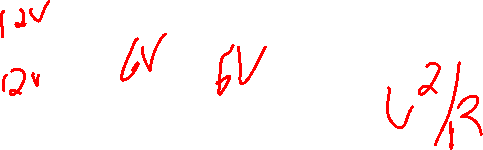 12V
12V 6V 6V
V²/R